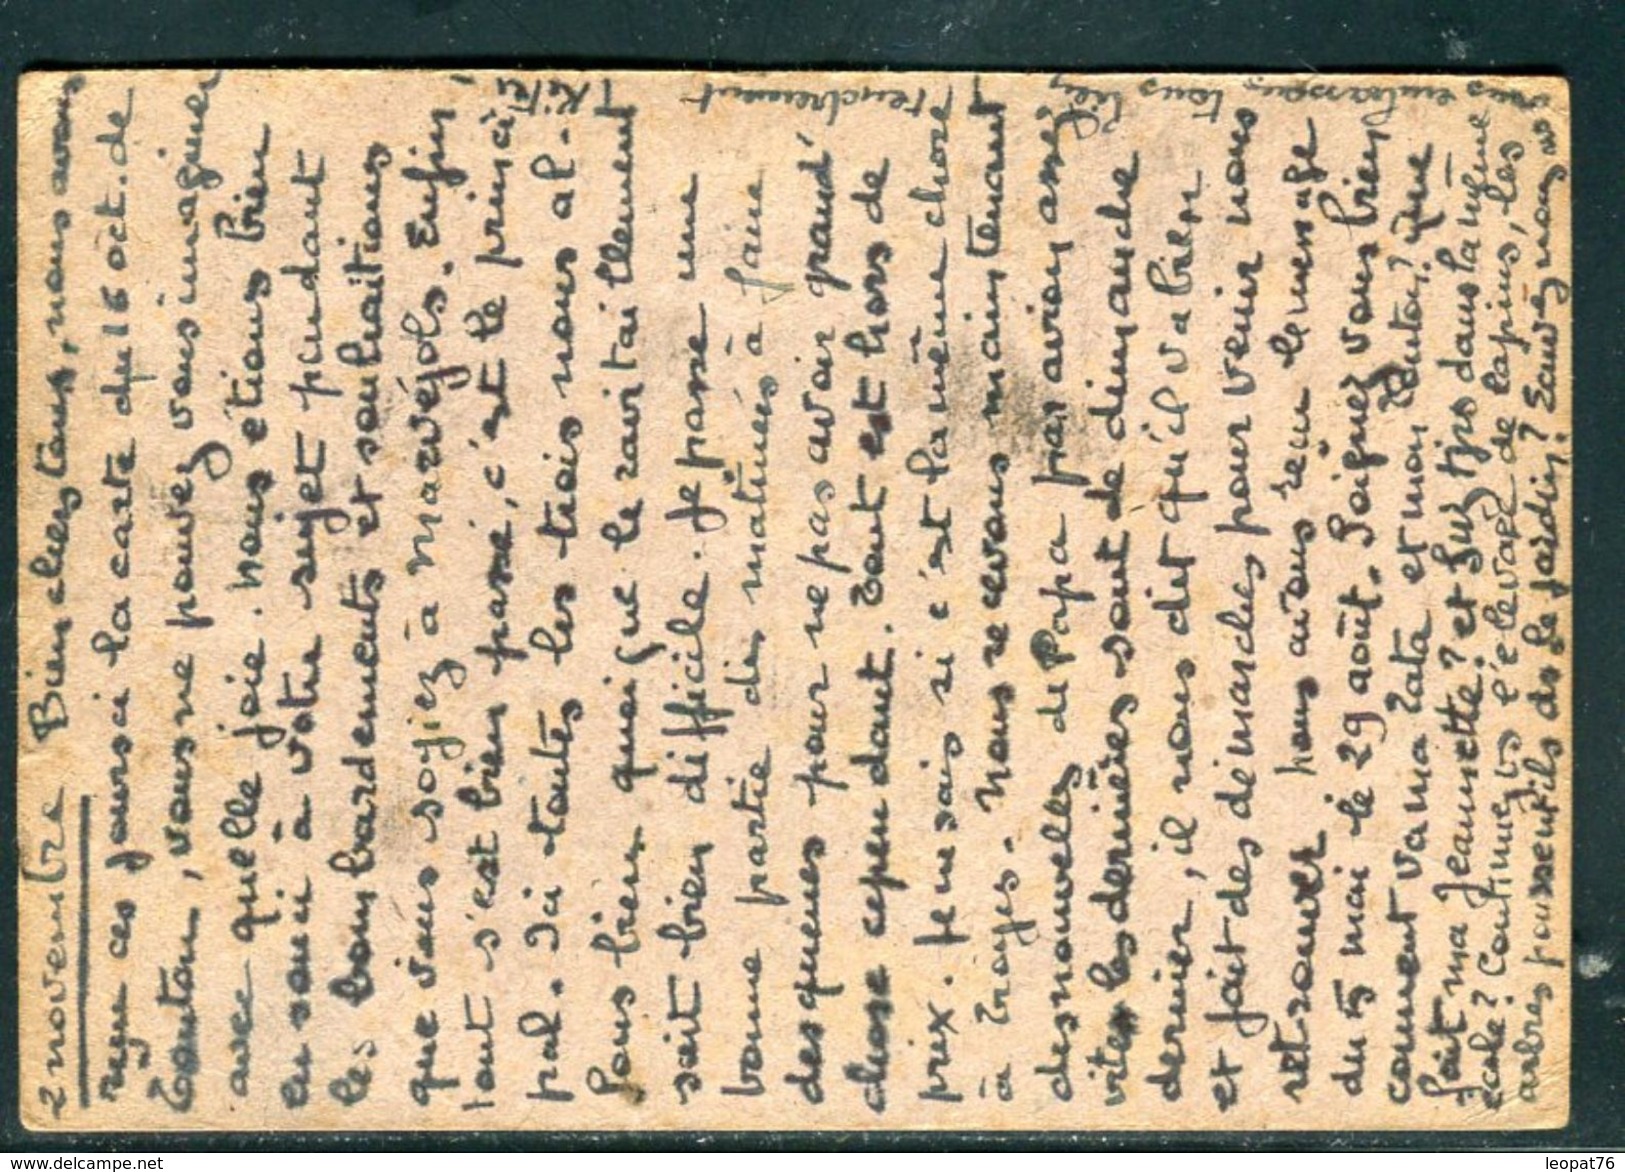 2 novembre Bien chers tous, nous avons
reçu ces jours ci la carte du 16 oct. de
Tonton, vous ne pouvez vous imaginer
avec quelle joie. nous étions bien
en souci à votre sujet pendant
les bombardements et souhaitions
que vous soyiez à Marvéjols. Enfin
tout s'est bien passé, c'est le princi
pal. Ici toutes les trois nous al-
lons bien quoique le ravitaillement
soit bien difficile. Je passe une
bonne partie des matinées à faire
des queues pour ne pas avoir grand'
chose cependant. Tout est hors de
prix. Je ne sais si c'est la même chose
à Troyes. Nous recevons maintenant
des nouvelles de Papa par avion assez
vite, les dernières sont de dimanche
dernier, il nous dit qu'il va bien
et fait des démarches pour venir nous
retrouver nous avons reçu le message
du 15 mai le 29 août. Soignez vous bien
comment va ma Tata et mon Tonton? que
fait ma Jeannette? et Suz tjrs dans la même
école? Continuez tjrs l'élevage de lapins, les
arbres poussent ils ds le jardin? Ecrivez nous
vous embrassons tous bien
tendrement
Kiki
leopat76